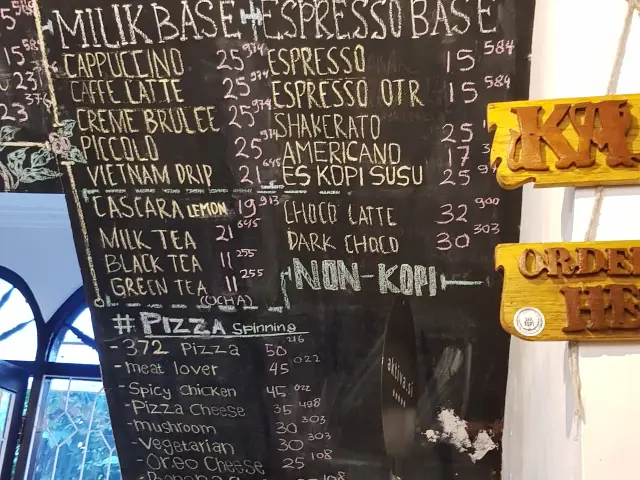 MILIK BASE ESPRESSO BASE
CAPPUCCINO 25 974
CAFFE LATTE 25 974
CREME BRULEE 25 974
PICCOLO 25 974
VIETNAM DRIP 21 645
ESPRESSO 15 584
ESPRESSO OTR 15 584
SHAKERATO 25
AMERICANO 17
ES KOPI SUSU 25
CASCARA LEMON 19 913
MILK TEA 21 645
BLACK TEA 11 255
GREEN TEA 11 255
(OCHA)
CHOCO LATTE 32 900
DARK CHOCO 30 303
NON-KOPI
#PIZZA Spinning
-372 Pizza 50 216
-meat lover 45 022
-Spicy chicken 45 022
-Pizza Cheese 35 498
-mushroom 30 303
-Vegetarian 30 303
-Oreo Cheese 25 108
aktiva.si
KA
ORDE
HE